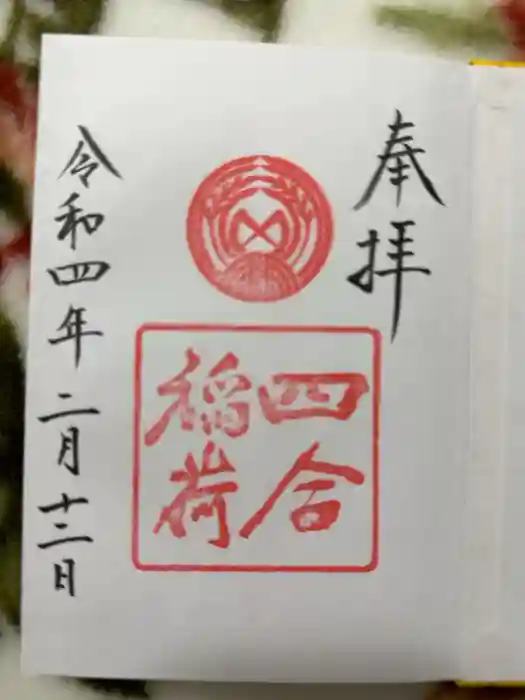 奉拝
四合
稲荷
令和四年二月十二日